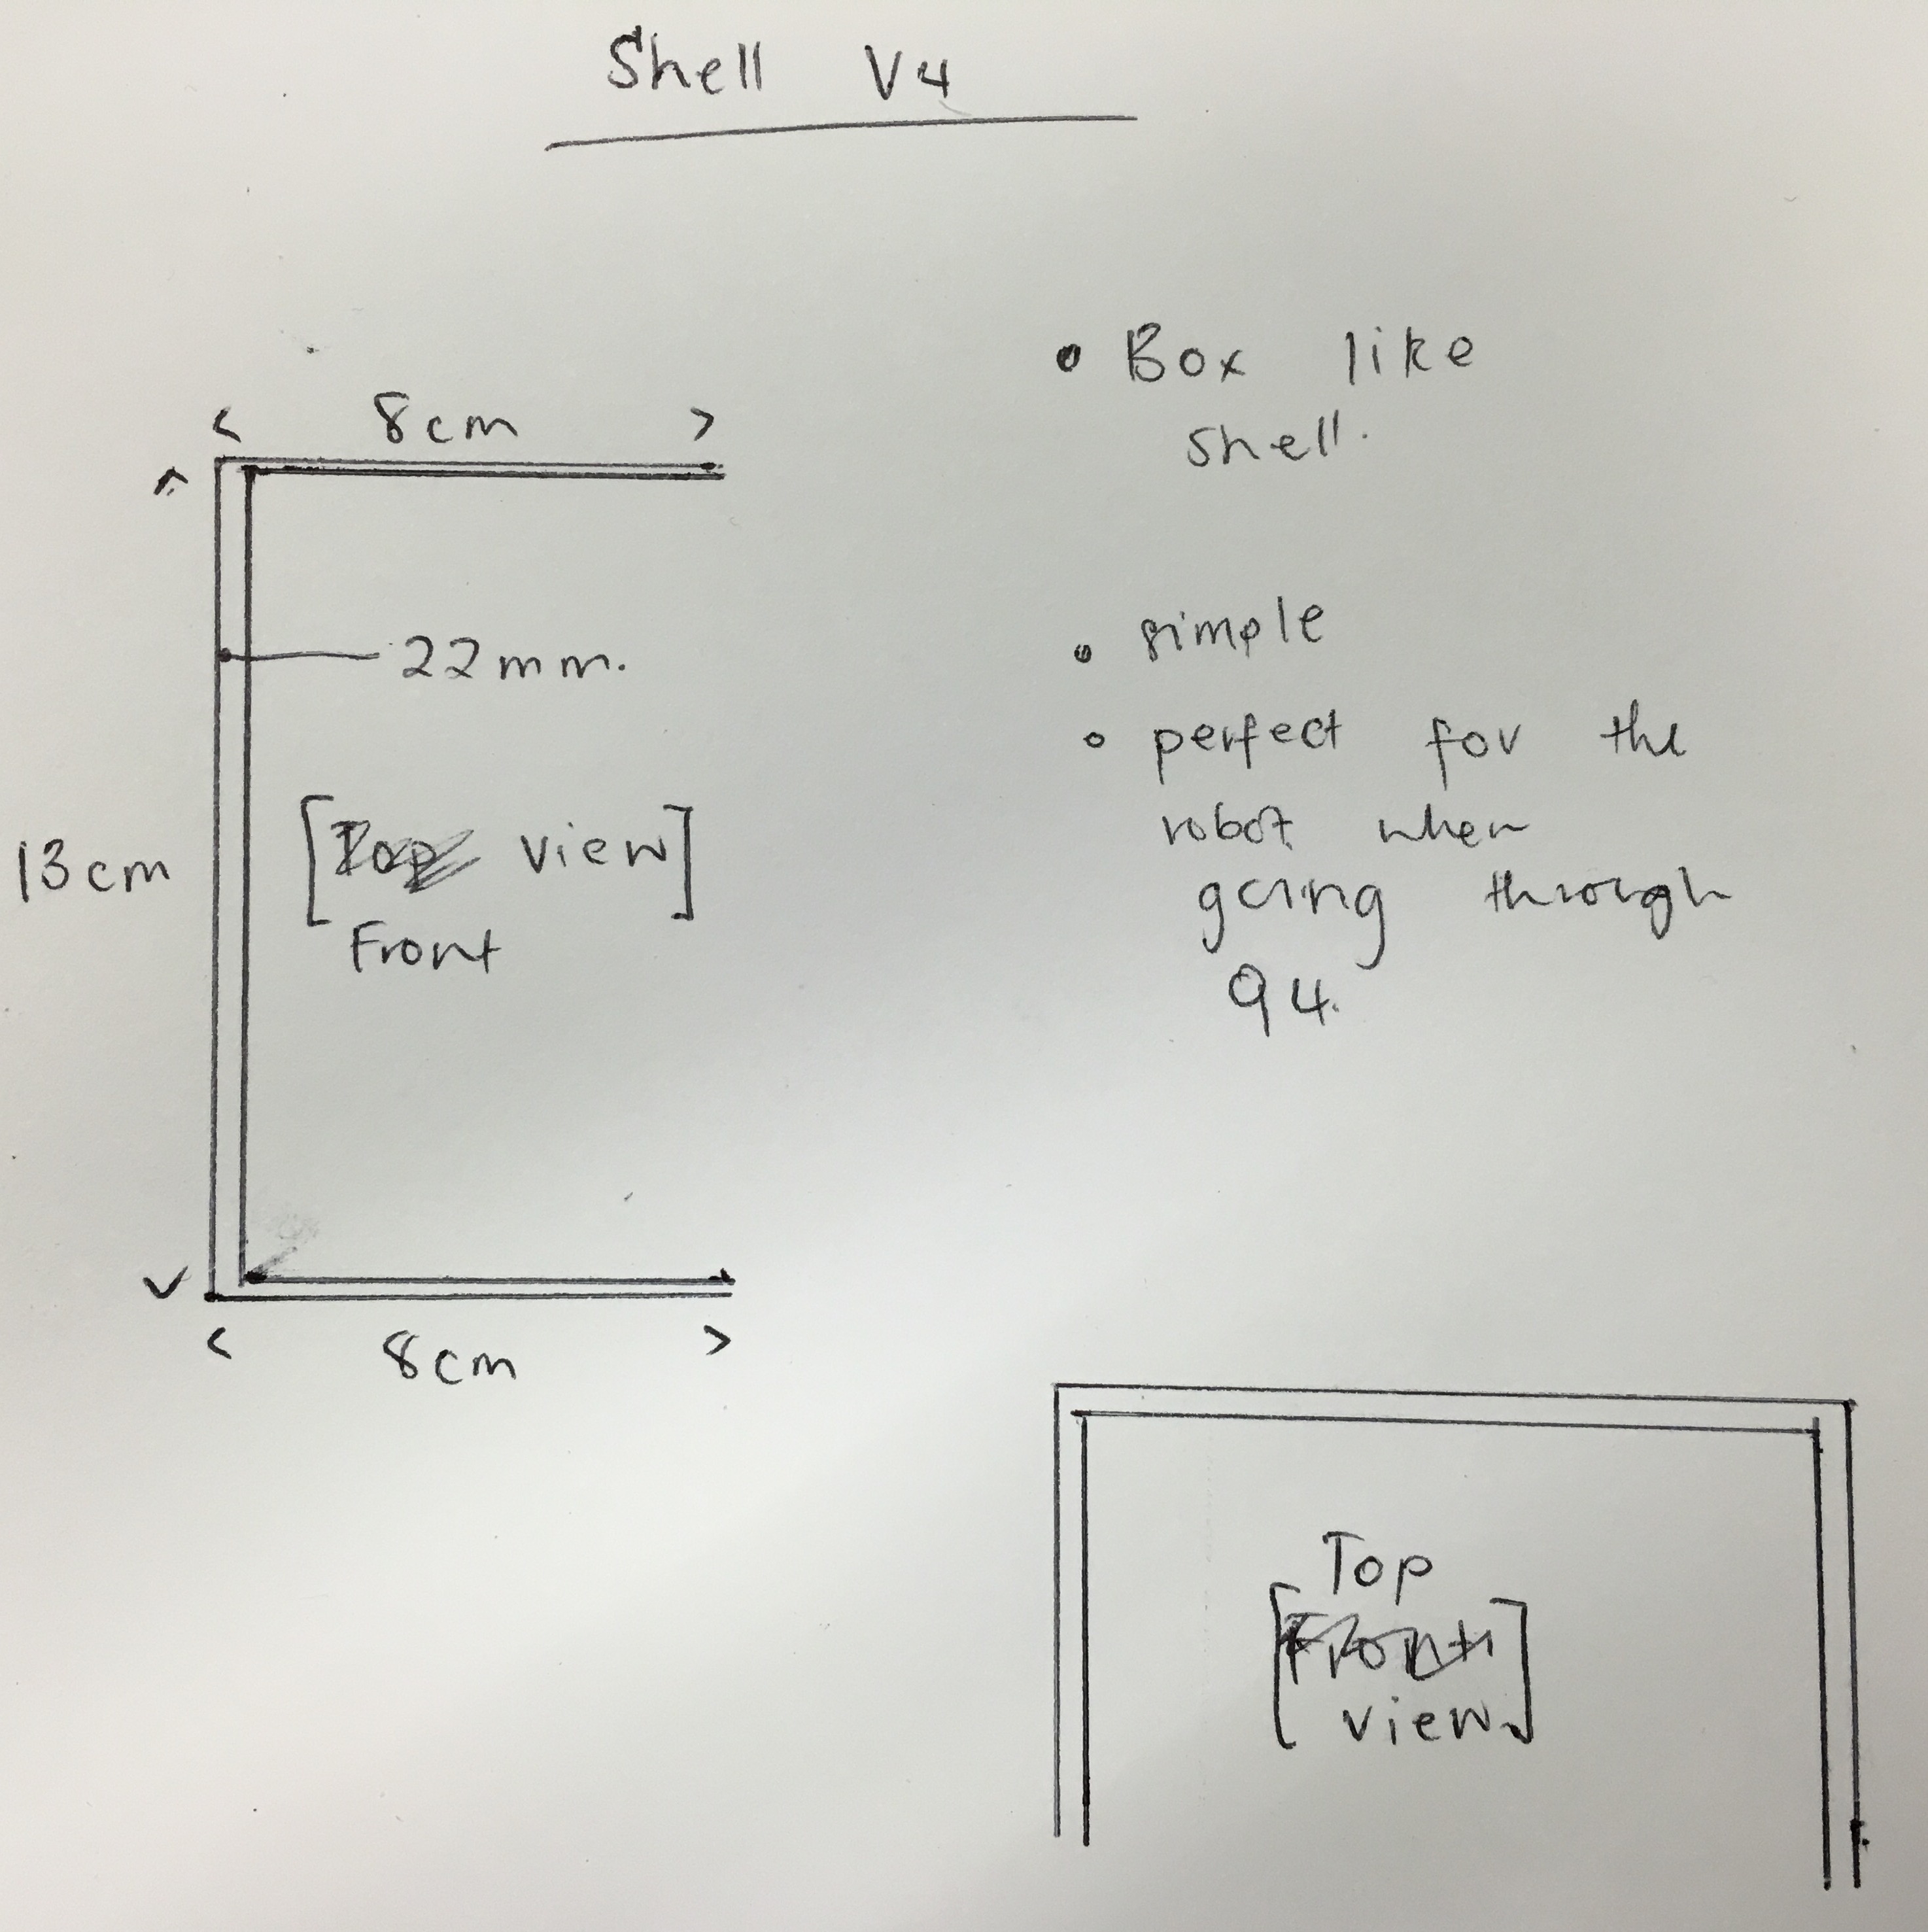 Shell V4
8cm
22mm.
13cm
[Top view]
Front
8cm
• Box like
shell.
• simple
• perfect for the
robot when
going through
Q4.
Top
[Front
view]